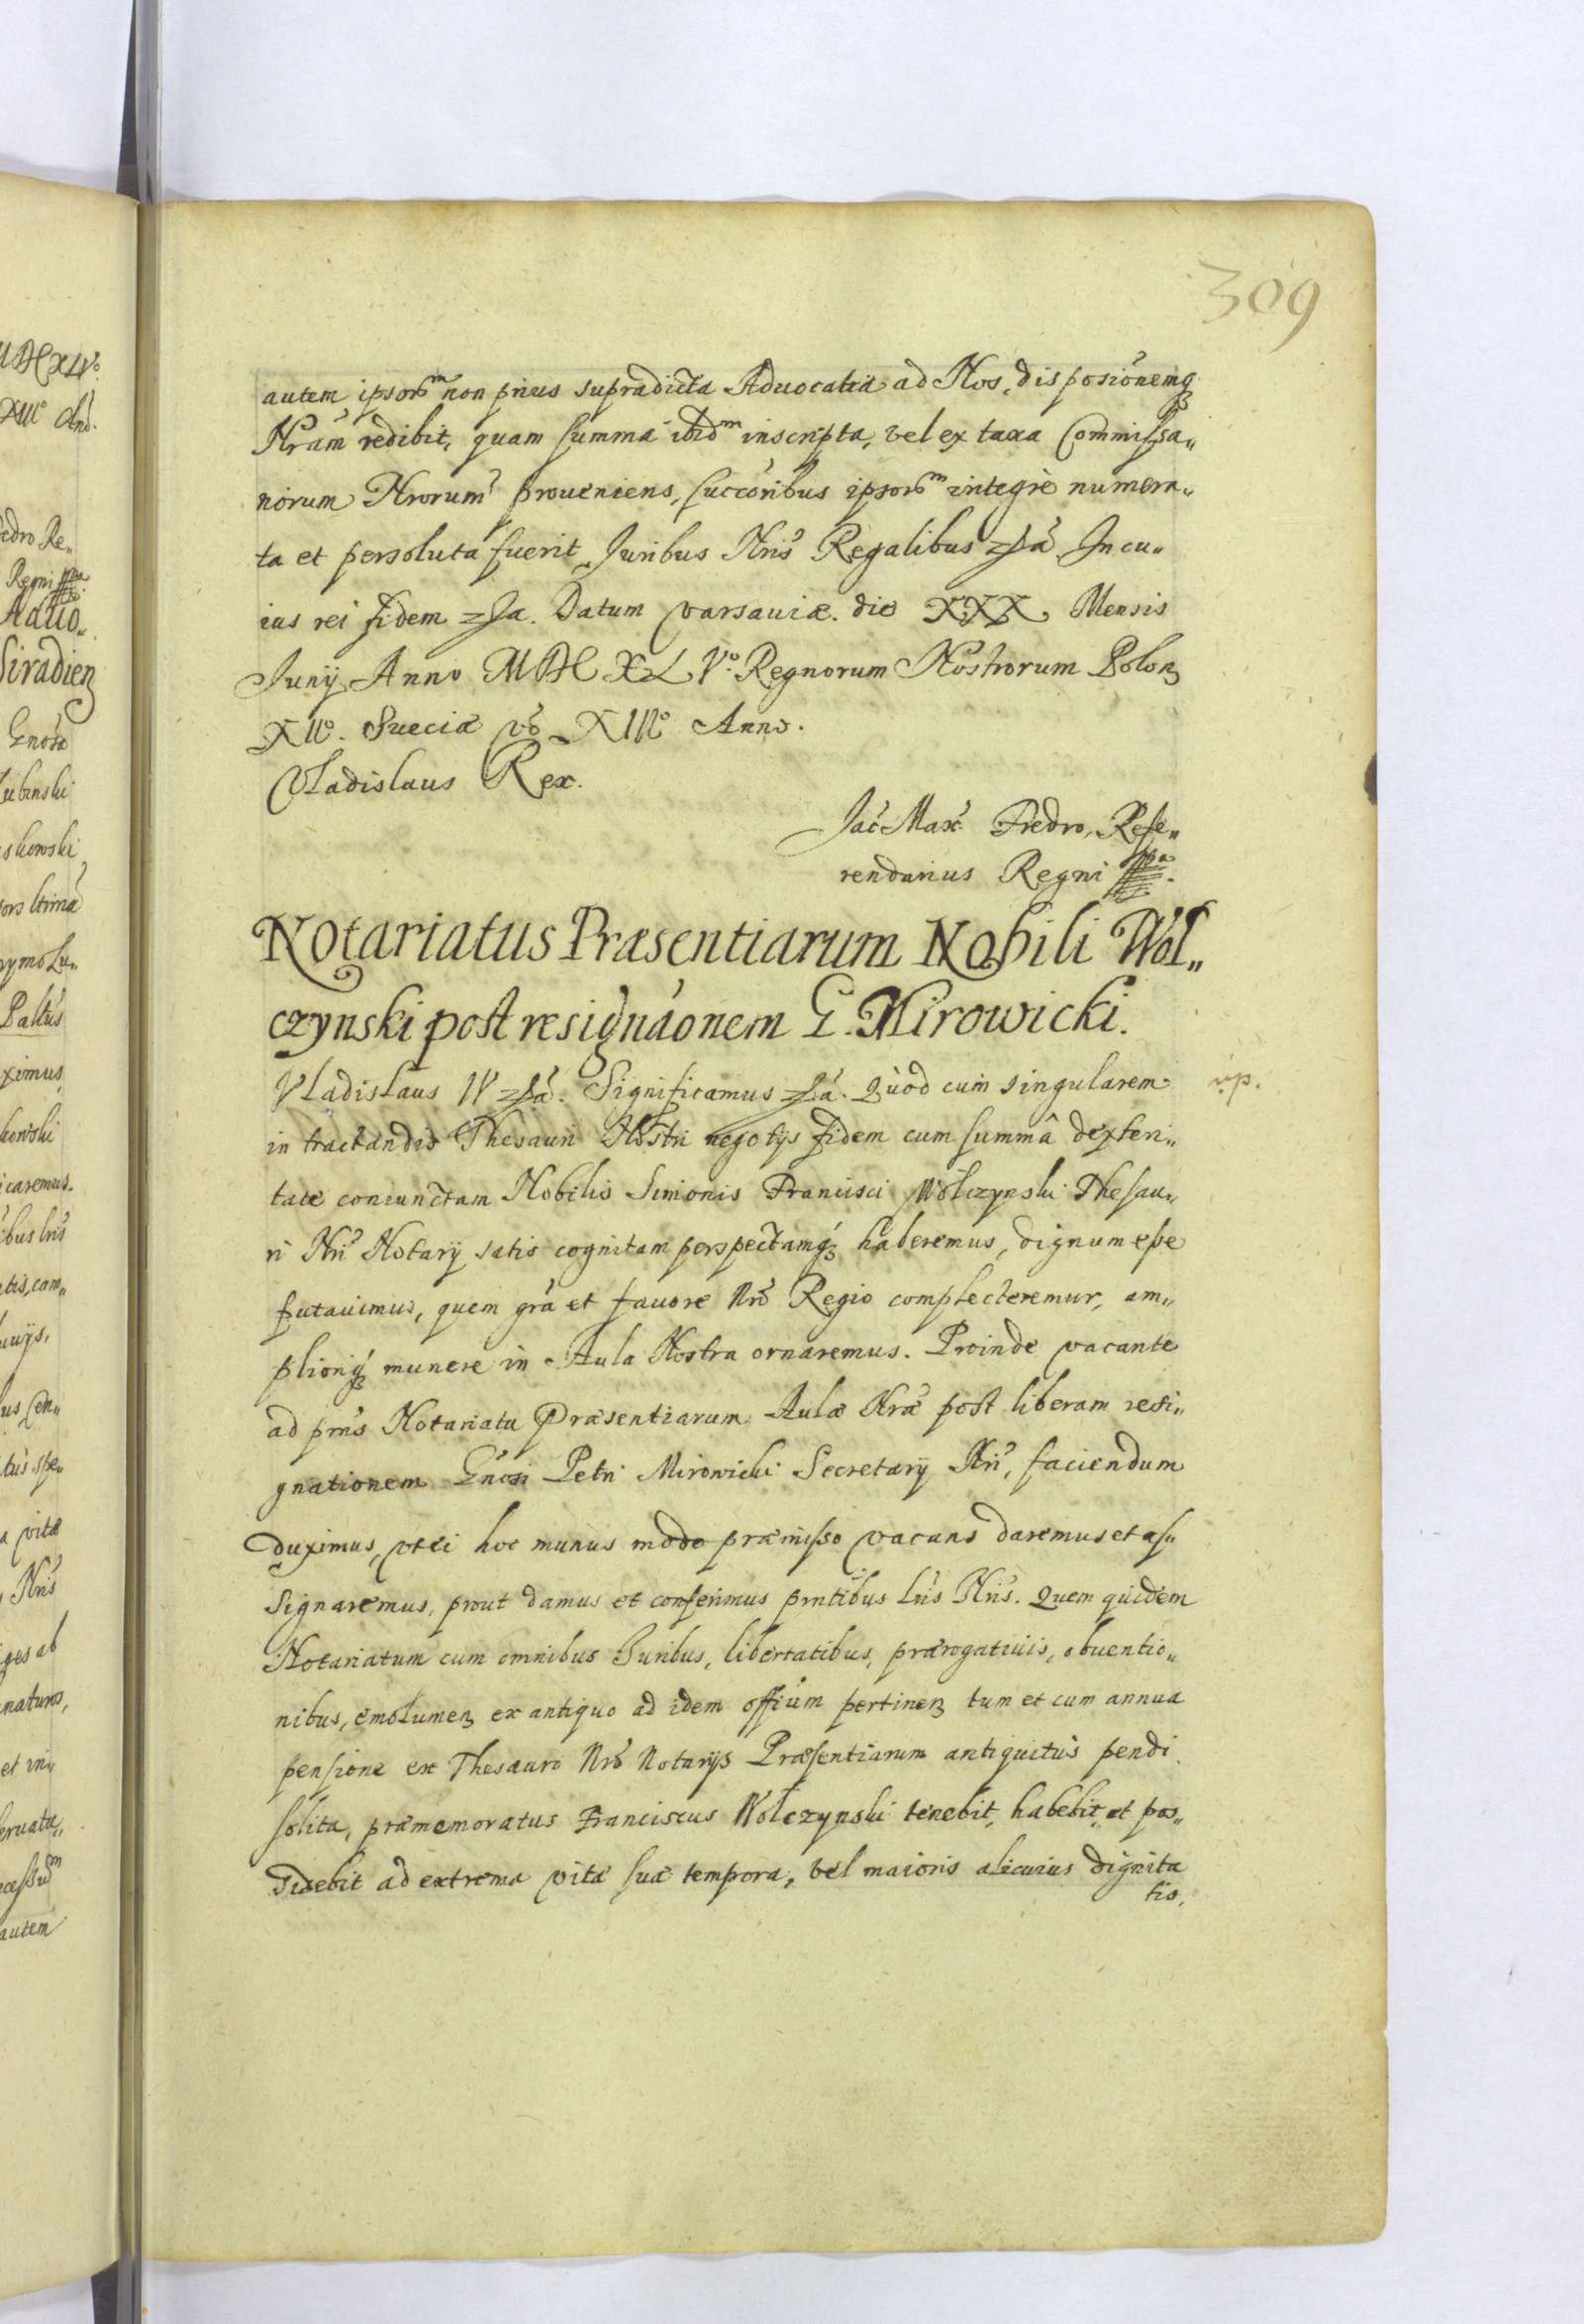 309
autem ipsorum non prius supradicta Aduocatia ad Nos, disposionemq
Nram redibit, quam summa ibidm inscripta, vel ex taxa Commissa„
riorum Nrorum proueniens, succoribus ipsorum integrè numera„
ta et persoluta fuerit Juribus Nris Regalibus
In cu„
ius rei fidem
Datum Varsauiæ. die XXX Mensis
Junij Anno MDCXLVo. Regnorum Nostrorum Polon
XIIo. Sueciæ vo XIIIo Anno.
Vladislaus Rex.
Jac Max Fredro, Refe„
rendarius Regni
Notariatus Præsentiarum Nobili Wol„
czynski post resignaonem G. Mirowicki.
Vladislaus IV
Significamus
Quod cum singularem
in tractandis Thesauri Nostri negotijs fidem cum summâ dexteri„
tate coniunctam Nobilis Simonis Francisci Wolczynski Thesau„
ri Nri Notarij satis cognitam perspectamq haberemus, dignum esse
putauimus, quem gra et fauore Nro Regio complecteremur, am„
plioriq munere in Aula Nostra ornaremus. Proinde vacante
ad pns Notariatu Præsentiarum Aulæ Nræ post liberam resi„
gnationem Gnosi Petri Mirowicki Secretarij Nri, faciendum
duximus, vt ei hoc munus modo præmisso vacans daremus et as„
signaremus, prout damus et conferimus pntibus Lris Nris. Quem quidem
Notariatum cum omnibus Juribus, libertatibus, prærogatiuis, obuentio„
nibus, emolumen ex antiquo ad idem offium pertinen tum et cum annua
pensione ex Thesauro Nro Notarijs Præsentiarum antiquitùs pendi
solita, præmemoratus Franciscus Wolczynski tenebit, habebit, et pos„
sidebit ad extrema vitæ suæ tempora, vel maioris alicuius dignita
tis,